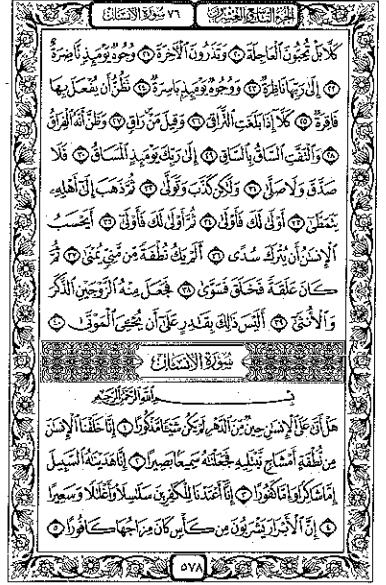 الجزء التاسع والعشرون ٧٦ سورة الإنسان
كَلَّا بَلْ تُحِبُّونَ ٱلْعَاجِلَةَ ٢٠ وَتَذَرُونَ ٱلْآخِرَةَ ٢١ وُجُوهٌ يَوْمَئِذٍ نَّاضِرَةٌ
٢٢ إِلَىٰ رَبِّهَا نَاظِرَةٌ ٢٣ وَوُجُوهٌ يَوْمَئِذٍ بَاسِرَةٌ ٢٤ تَظُنُّ أَن يُفْعَلَ بِهَا
فَاقِرَةٌ ٢٥ كَلَّا إِذَا بَلَغَتِ ٱلتَّرَاقِيَ ٢٦ وَقِيلَ مَنْ رَاقٍ ٢٧ وَظَنَّ أَنَّهُ ٱلْفِرَاقُ
٢٨ وَٱلْتَفَّتِ ٱلسَّاقُ بِٱلسَّاقِ ٢٩ إِلَىٰ رَبِّكَ يَوْمَئِذٍ ٱلْمَسَاقُ ٣٠ فَلَا
صَدَّقَ وَلَا صَلَّىٰ ٣١ وَلَٰكِن كَذَّبَ وَتَوَلَّىٰ ٣٢ ثُمَّ ذَهَبَ إِلَىٰ أَهْلِهِ
يَتَمَطَّىٰ ٣٣ أَوْلَىٰ لَكَ فَأَوْلَىٰ ٣٤ ثُمَّ أَوْلَىٰ لَكَ فَأَوْلَىٰ ٣٥ أَيَحْسَبُ
ٱلْإِنسَٰنُ أَن يُتْرَكَ سُدًى ٣٦ أَلَمْ يَكُ نُطْفَةً مِّن مَّنِيٍّ يُمْنَىٰ ٣٧ ثُمَّ
كَانَ عَلَقَةً فَخَلَقَ فَسَوَّىٰ ٣٨ فَجَعَلَ مِنْهُ ٱلزَّوْجَيْنِ ٱلذَّكَرَ
وَٱلْأُنثَىٰ ٣٩ أَلَيْسَ ذَٰلِكَ بِقَٰدِرٍ عَلَىٰ أَن يُحْـِۧيَ ٱلْمَوْتَىٰ ٤٠
سورة الإنسان
بِسْمِ ٱللَّهِ ٱلرَّحْمَٰنِ ٱلرَّحِيمِ
هَلْ أَتَىٰ عَلَى ٱلْإِنسَٰنِ حِينٌ مِّنَ ٱلدَّهْرِ لَمْ يَكُن شَيْـًٔا مَّذْكُورًا ١ إِنَّا خَلَقْنَا ٱلْإِنسَٰنَ
مِن نُّطْفَةٍ أَمْشَاجٍ نَّبْتَلِيهِ فَجَعَلْنَٰهُ سَمِيعًۢا بَصِيرًا ٢ إِنَّا هَدَيْنَٰهُ ٱلسَّبِيلَ
إِمَّا شَاكِرًا وَإِمَّا كَفُورًا ٣ إِنَّا أَعْتَدْنَا لِلْكَٰفِرِينَ سَلَٰسِلَا۟ وَأَغْلَٰلًا وَسَعِيرًا
٤ إِنَّ ٱلْأَبْرَارَ يَشْرَبُونَ مِن كَأْسٍ كَانَ مِزَاجُهَا كَافُورًا ٥
٥٧٨